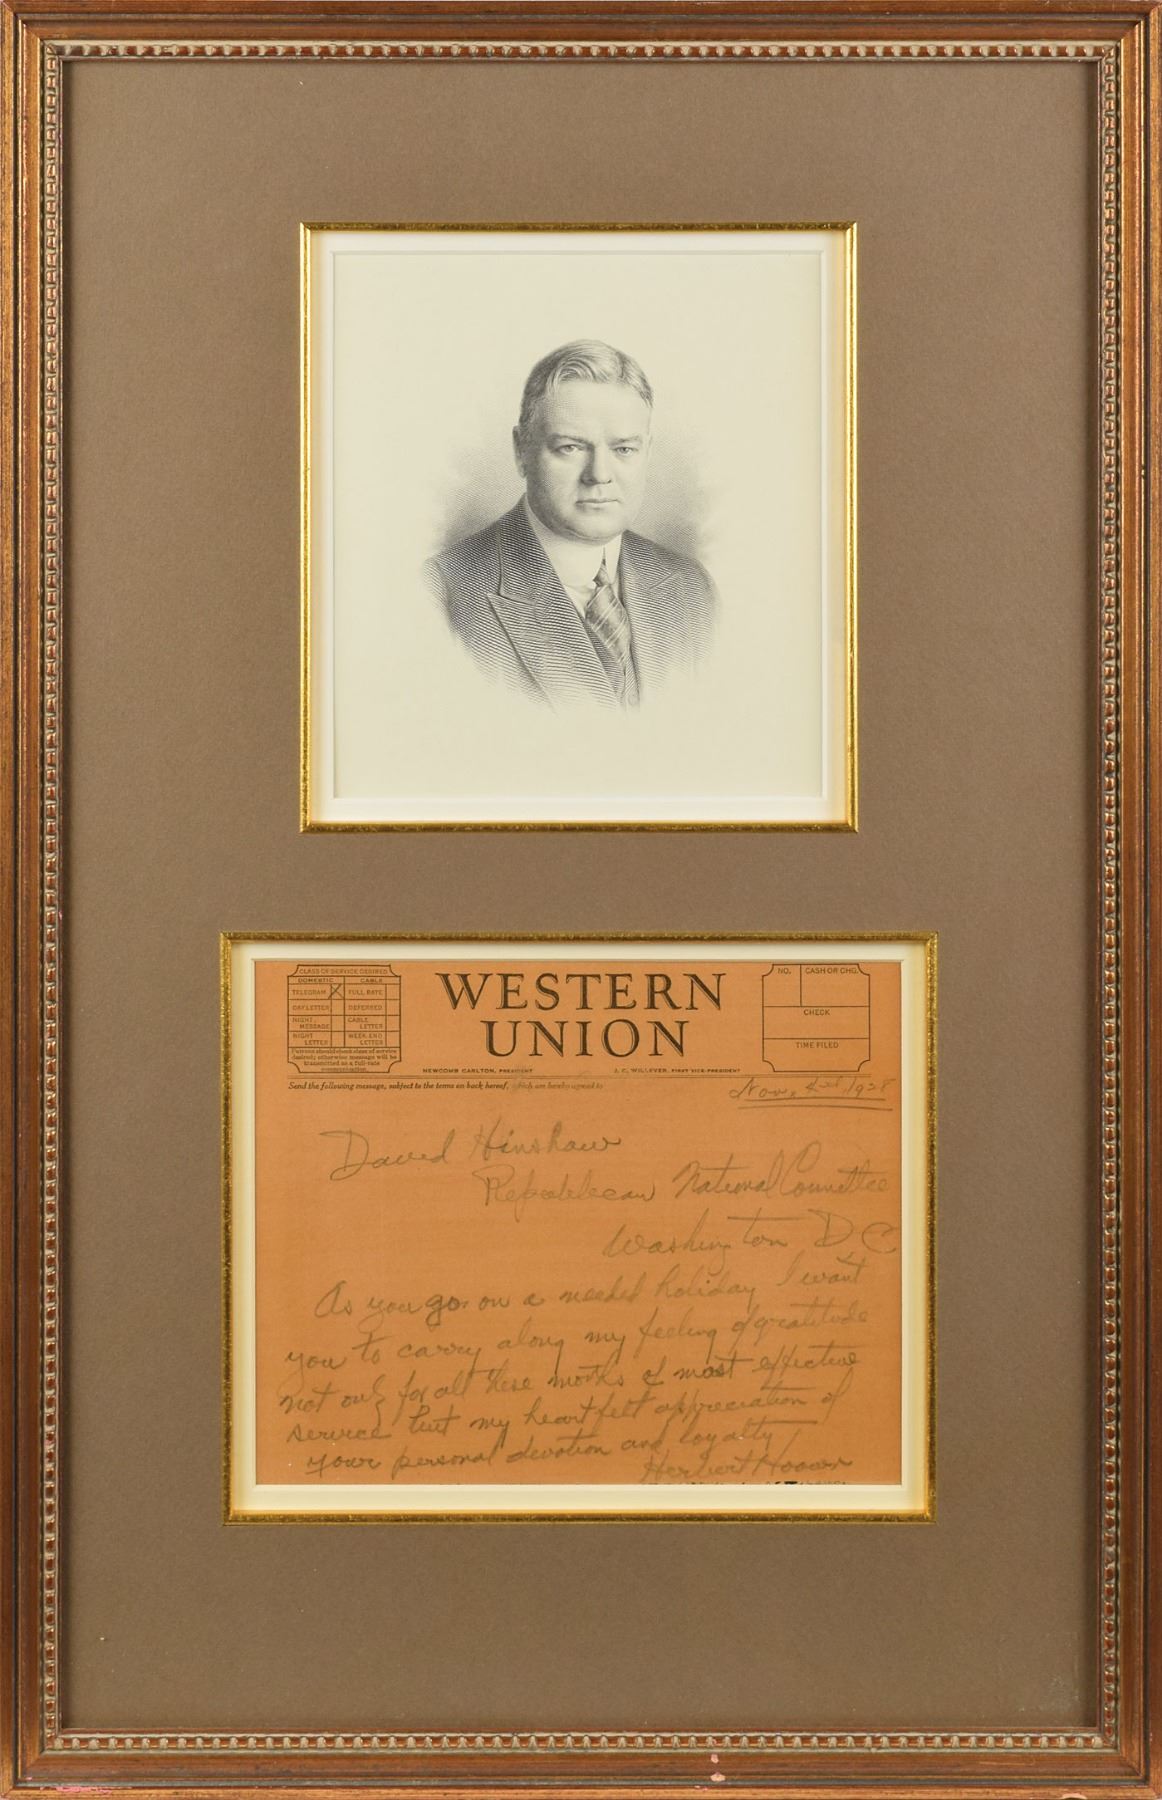 CLASS OF SERVICE DESIRED
DOMESTIC CABLE
TELEGRAM X FULL RATE
DAY LETTER DEFERRED
NIGHT MESSAGE CABLE LETTER
NIGHT LETTER WEEK END LETTER
Patrons should check class of service
desired; otherwise message will be
transmitted as a full-rate
communication.
WESTERN
UNION
NEWCOMB CARLTON, PRESIDENT J. C. WILLEVER, FIRST VICE-PRESIDENT
NO. CASH OR CHG.
CHECK
TIME FILED
Send the following message, subject to the terms on back hereof, which are hereby agreed to
Nov. 1928
David Hinshaw
Republican National Committee
Washington D C
As you go on a needed holiday I want
you to carry along my feeling of gratitude
not only for all these months of most effective
service but my heartfelt appreciation of
your personal devotion and loyalty
Herbert Hoover